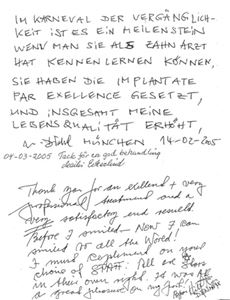 IM KARNEVAL DER VERGÄNGLICH-
KEIT IST ES EIN MEILENSTEIN
WENN MAN SIE ALS ZAHNARZT
HAT KENNENLERNEN KÖNNEN,
SIE HABEN DIE IMPLANTATE
PAR EXELLENCE GESETZT,
UND INSGESAMT MEINE
LEBENSQUALITÄT ERHÖHT,
MÜNCHEN 14-02-2005
04-03-2005 Tack för en god behandling
Thank you for an + very
professional treatment and a
very satisfactory end result.
Before I smiled - NOW I can
smile to all the World!
I must you
choice of STAFF: All are Stars
in their own right. It was
a great pleasure